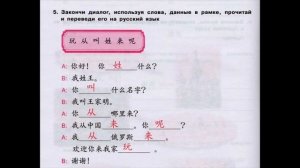 5. Закончи диалог, используя слова, данные в рамке, прочитай
и переведи его на русский язык
玩 从 叫 姓 来 呢
A: 你好! 你 姓 什么?
B: 我姓王。
A: 你 叫 什么名字?
B: 我叫王家明。
A: 你 从 哪里来?
B: 我从中国 来 。你 呢 ?
A: 我 从 俄罗斯 来 。
欢迎你来我家 玩 。
B: 谢谢!